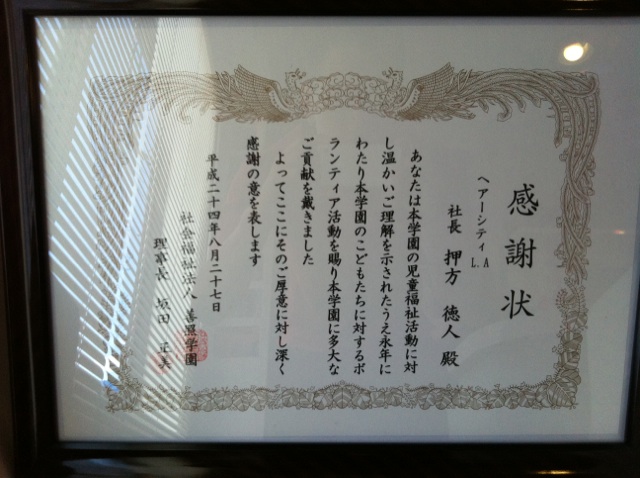 感謝状
ヘアーシティL.A
社長 押方 徳人 殿
あなたは本学園の児童福祉活動に対
し温かいご理解を示されたうえ永年に
わたり本学園のこどもたちに対するボ
ランティア活動を賜り本学園に多大な
ご貢献を戴きました
よってここにそのご厚意に対し深く
感謝の意を表します
平成二十四年八月二十七日
社会福祉法人 善隣学園
理事長 坂田 正美